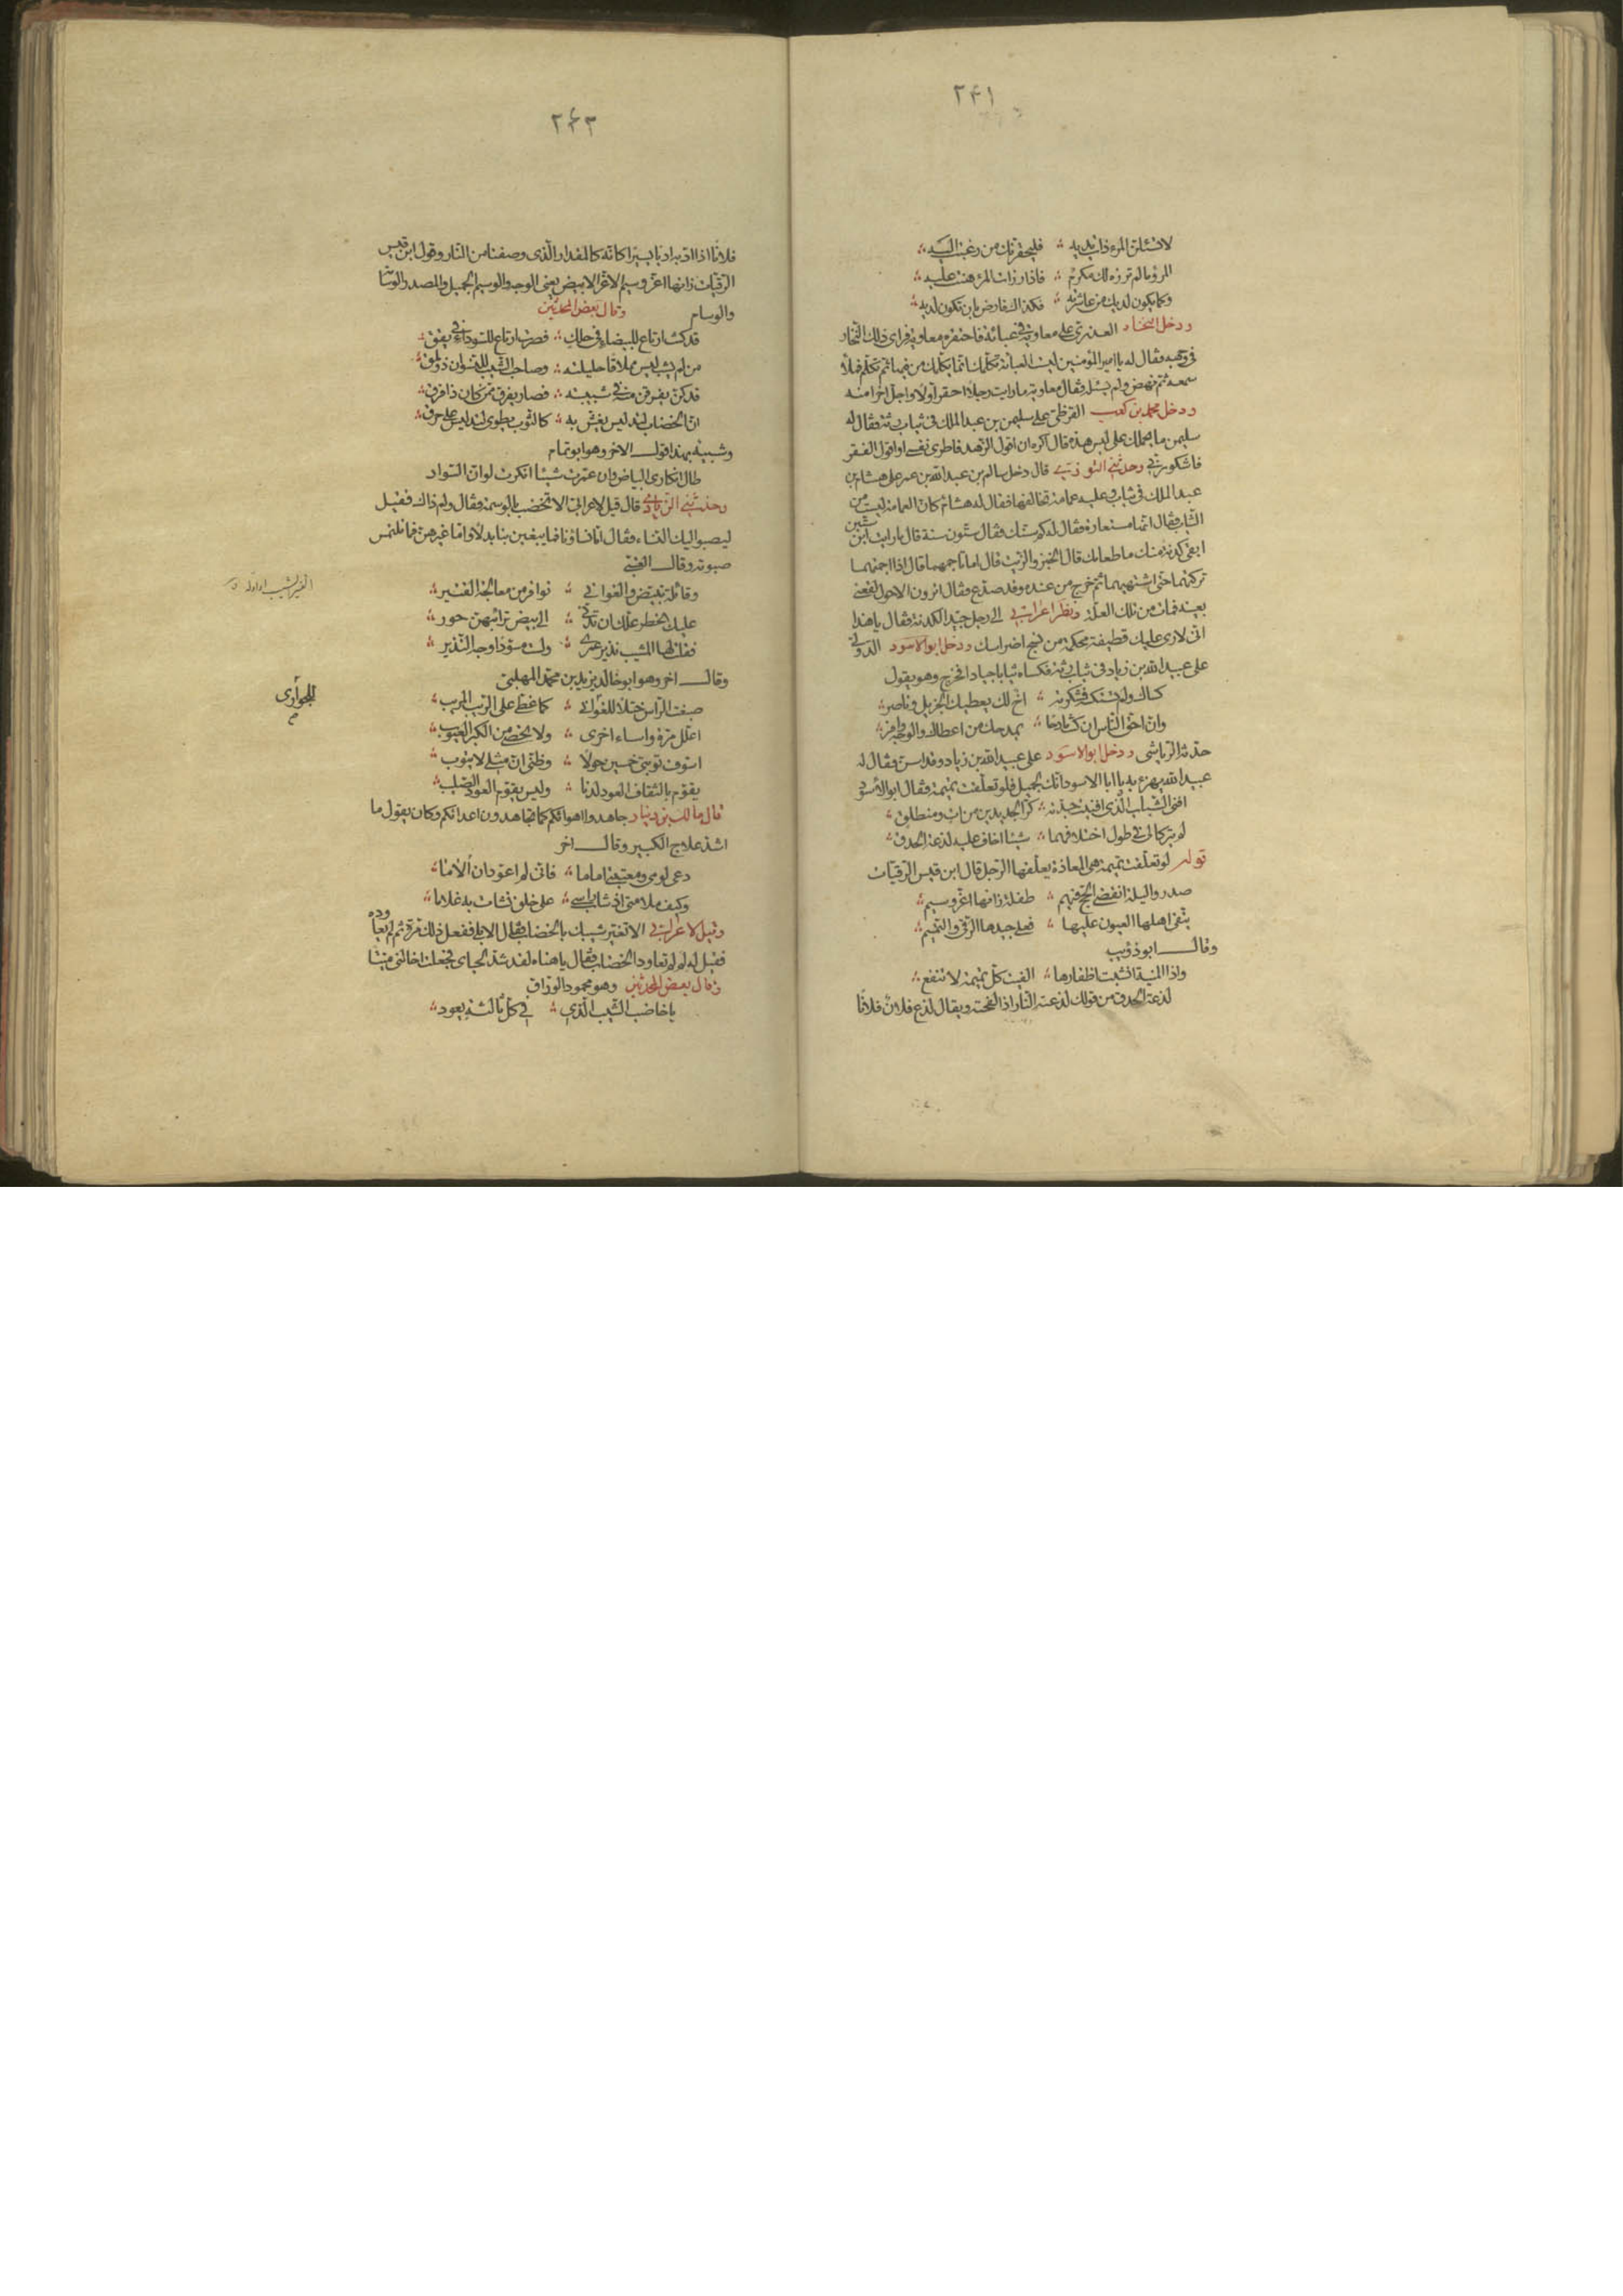 ٢٤١
لا تسئلن المرء ذات يديه ؛ فليحقرنك من رغبت اليه
المرء ما لم ترزه لك مكرم ؛ فاذا رزات المرء هنت عليه
وكما يكون لديك من عاشرته ؛ فكذاك فارض بان تكون لديه
ودخل النخار العذرى على معاوية فى عباءة فاحتقره معاوية فراى ذلك النخار
فى وجهه فقال له يا امير المؤمنين ليست العباءة تكلمك انما يكلمك من فيها ثم تكلم فملأ
سمعه ثم نهض ولم يسئله فقال معاوية ما رايت رجلا احقر اولا ولا اجل اخرا منه
ودخل محمد بن كعب القرظى على سليمن بن عبد الملك فى ثياب رثة فقال له
سليمن ما يحملك على لبس هذه قال اكره ان اقول الزهد فاطرى نفسى او اقول الفقر
فاشكو ربى وحدثنى التوزى قال دخل سالم بن عبد الله بن عمر على هشام بن
عبد الملك فى ثياب وعليه عمامة تخالفها فقال له هشام كان العمامة ليست من
الثياب فقال انها مستعارة فقال له كم سنك فقال ستون سنة قال ما رايت ابن ستين
ابقى كدنة منك ما طعامك قال الخبز والزيت قال اما تاجمهما قال اذا اجمتهما
تركتهما حتى اشتهيهما ثم خرج من عنده وقد صدع فقال اترون الاحول لقعنى
بعينه فمات من تلك العلة ونظر اعرابى الى رجل جيد الكدنة فقال يا هذا
انى لارى عليك قطيفة محكمة من نسج اضراسك ودخل ابو الاسود الدولى
على عبيد الله بن زياد فى ثياب رثة فكساه ثيابا جيادا فخرج وهو يقول
كساك ولم تستكسه فشكرته ؛ اخ لك يعطيك الجزيل وناصر
وان احق الناس ان كنت مادحا ؛ بمدحك من اعطاك والوجه وافر
حدثنا الرياشى ودخل ابو الاسود على عبيد الله بن زياد وقد اسن فقال له
عبيد الله يهزء به يا ابا الاسود انك لجميل فلو تعلقت تميمة فقال ابو الاسود
افنى الشباب الذى افنيت جدته ؛ كر الجديدين من ات ومنطلق
لم يتركا لى فى طول اختلافهما ؛ شيئا اخاف عليه لذعة الحدق
قوله لو تعلقت تميمة هى المعاذة يعلقها الرجل قال ابن قيس الرقيات
صدروا ليلة انقضى الحج فيهم ؛ طفلة زانها اغر وسيم
يتقى اهلها العيون عليها ؛ فعلى جيدها الرقى والتميم
وقال ابو ذؤيب
واذا المنية انشبت اظفارها ؛ الفيت كل تميمة لا تنفع
لذعة الحدق من قولك لذعته النار اذا لفحته ويقال لذع فلان فلانا
٢٤٣
فلانا اذا ادبه ادبا يسيرا كانه كالمقدار الذى وصفنا من النار وقول ابن قيس
الرقيات زانها اغر وسيم الاغر الابيض يعنى الوجه والوسيم الجميل والمصدر الوسامة
والوسام وقال بعض المحدثين
قد كنت ارتاع للبيضاء فى حلك ؛ فصرت ارتاع للسوداء فى يقق
من لم يشب ليس مملاقا حليلته ؛ وصاحب الشيب للنسوان ذو ملق
قد كن يفرقن منه فى شبيبته ؛ فصار يفرق ممن كان ذا فرق
ان الخضاب لتدليس يغش به ؛ كالثوب يطوى لتدليس على حرق
وشبيه بهذا قول الاخر وهو ابو تمام
طال انكارى البياض وان عمرت شيئا انكرت لون السواد
وحدثنى الزيادى قال قيل لاعرابى الا تخضب بالوسمة فقال ولم ذاك فقيل
ليصبو اليك النساء فقال اما نساؤنا فما يبغين بنا بدلا واما غيرهن فما نلتمس
صبوته وقال العتبى
وقائلة تبيض والغوانى ؛ نوافر من معالجة القتير
القتير الشيب او اوله
عليك الخطر علك ان تدنى ؛ الى بيض ترائبهن حور
فقلت لها المشيب نذير عمرى ؛ ولست مسودا وجه النذير
وقال اخر وهو ابو خالد يزيد بن محمد المهلبى
للجوارى
صبغت الراس ختلا للغوانى ؛ كما غطى على الريب المريب
اعلل مرة واساء اخرى ؛ ولا تحصى من الكبر العيوب
اسوف توبتى خمسين حولا ؛ وظنى ان مثلى لا يتوب
يقوم بالثقاف العود لدنا ؛ وليس يقوم العود الصليب
قال مالك بن دينار جاهدوا اهوائكم كما تجاهدون اعدائكم وكان يقول ما
اشد علاج الكبير وقال اخر
دعى لومى ومعتبتى اماما ؛ فانى لم اعود ان الاما
وكيف ملامتى اذ شاب راسى ؛ على خلق نشات به غلاما
وقيل لاعرابى الا تغير شيبك بالخضاب فقال الا بلى ففعل ذلك مرة ثم لم يعاوده
فقيل له لم لم تعاود الخضاب فقال يا هناه لقد شد لحياى فجعلت اخالنى ميتا
وقال بعض المحدثين وهو محمود الوراق
يا خاضب الشيب الذى ؛ فى كل ثالثة يعود